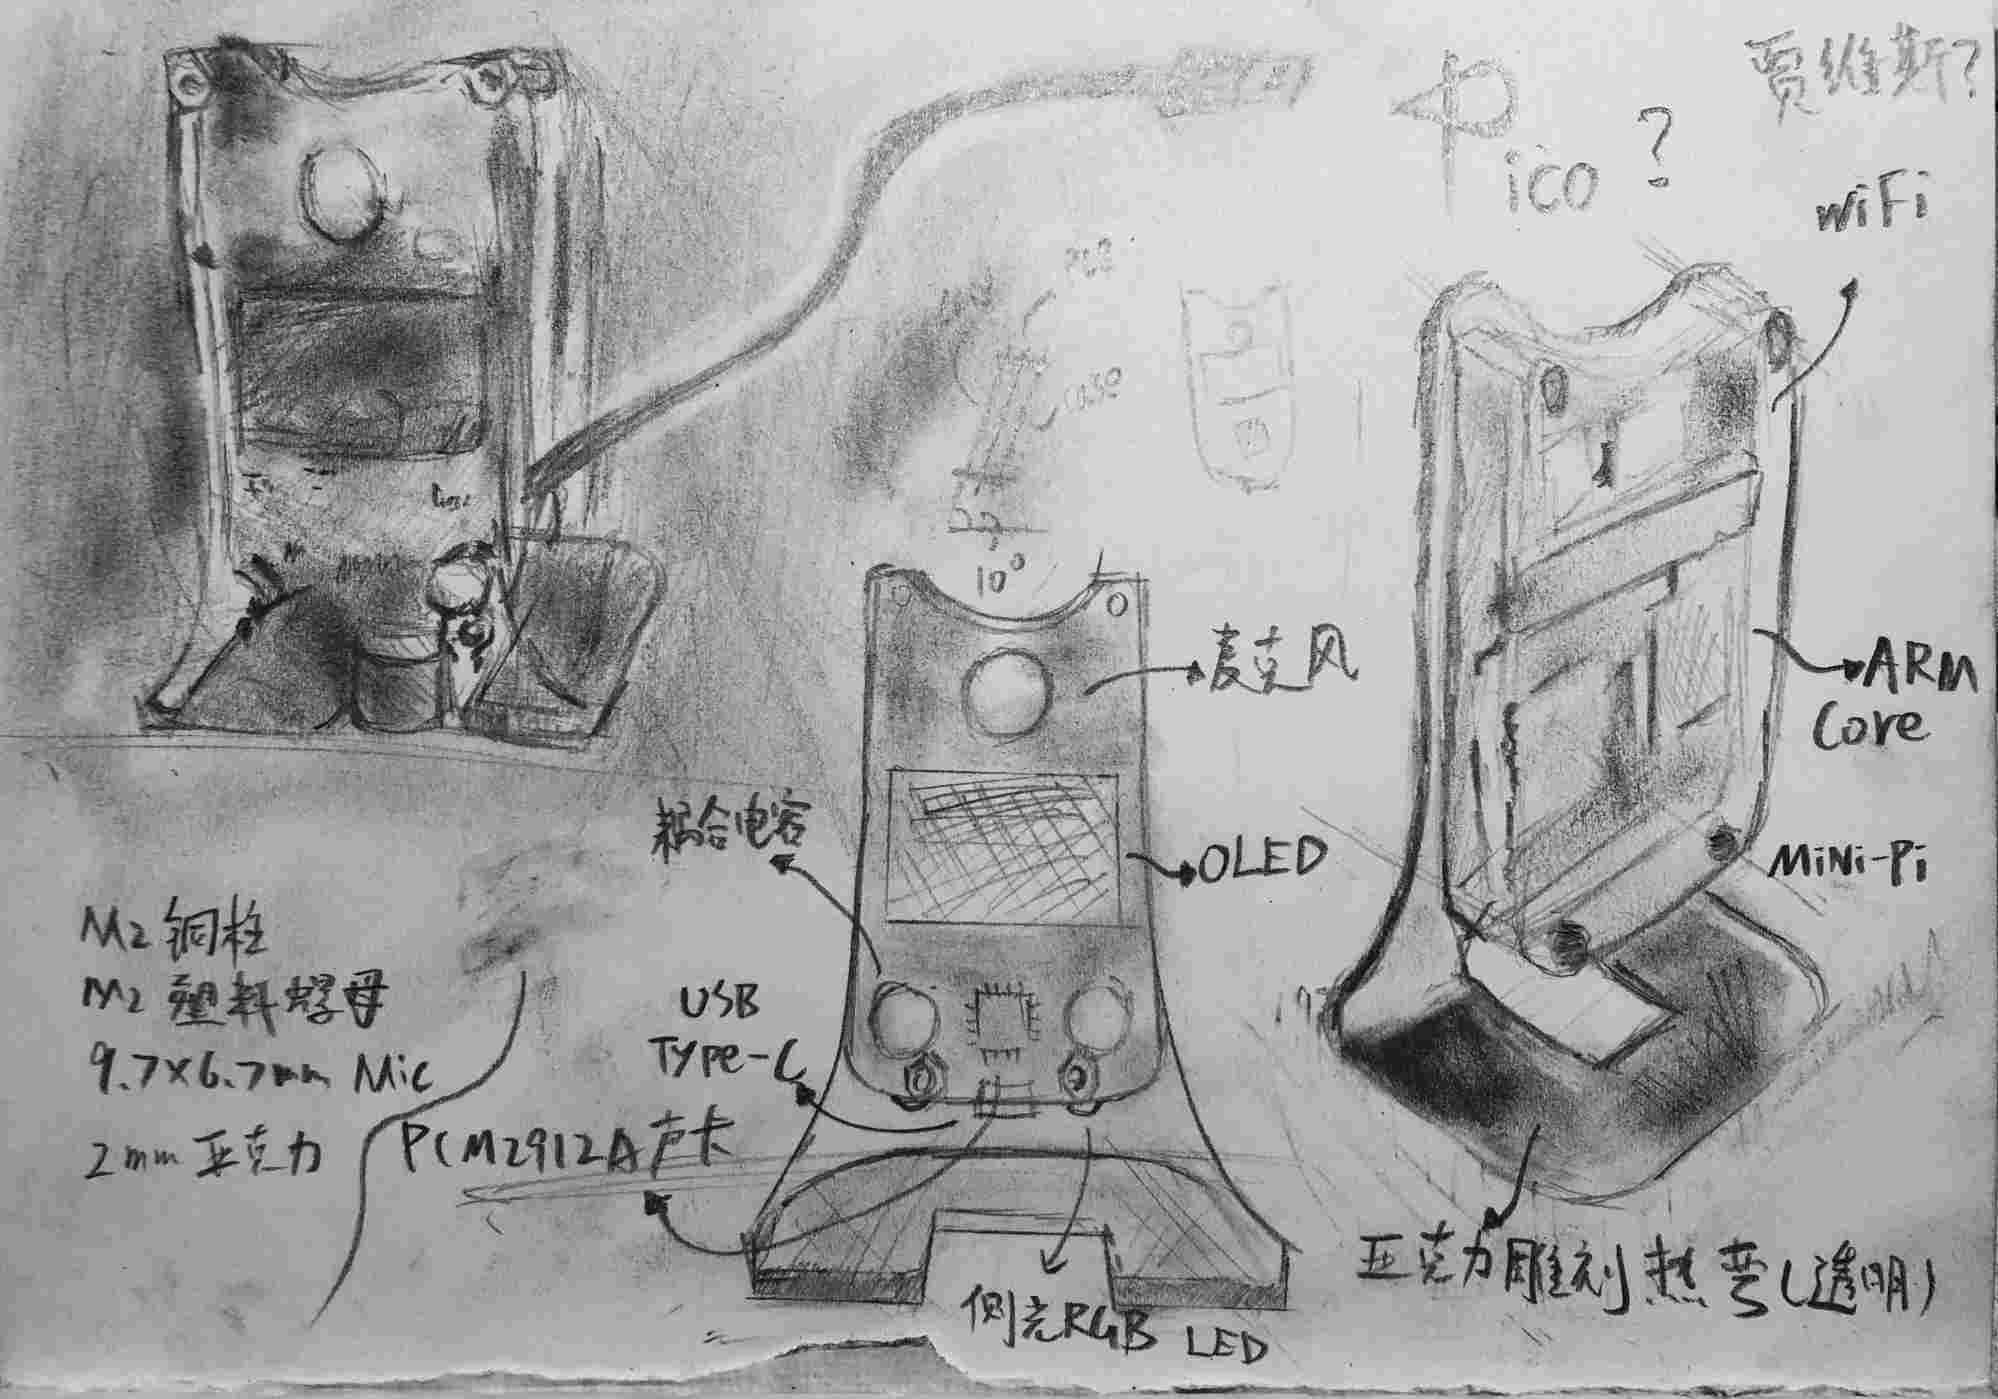 贾维斯?
Pico ?
WiFi
10°
麦克风
ARM
Core
耦合电容
OLED
MiNi-Pi
M2 铜柱
M2 塑料螺母
9.7×6.7mm Mic
2mm 亚克力
USB
TYPe-C
PCM2912A声卡
亚克力雕刻热弯(透明)
侧光RGB LED